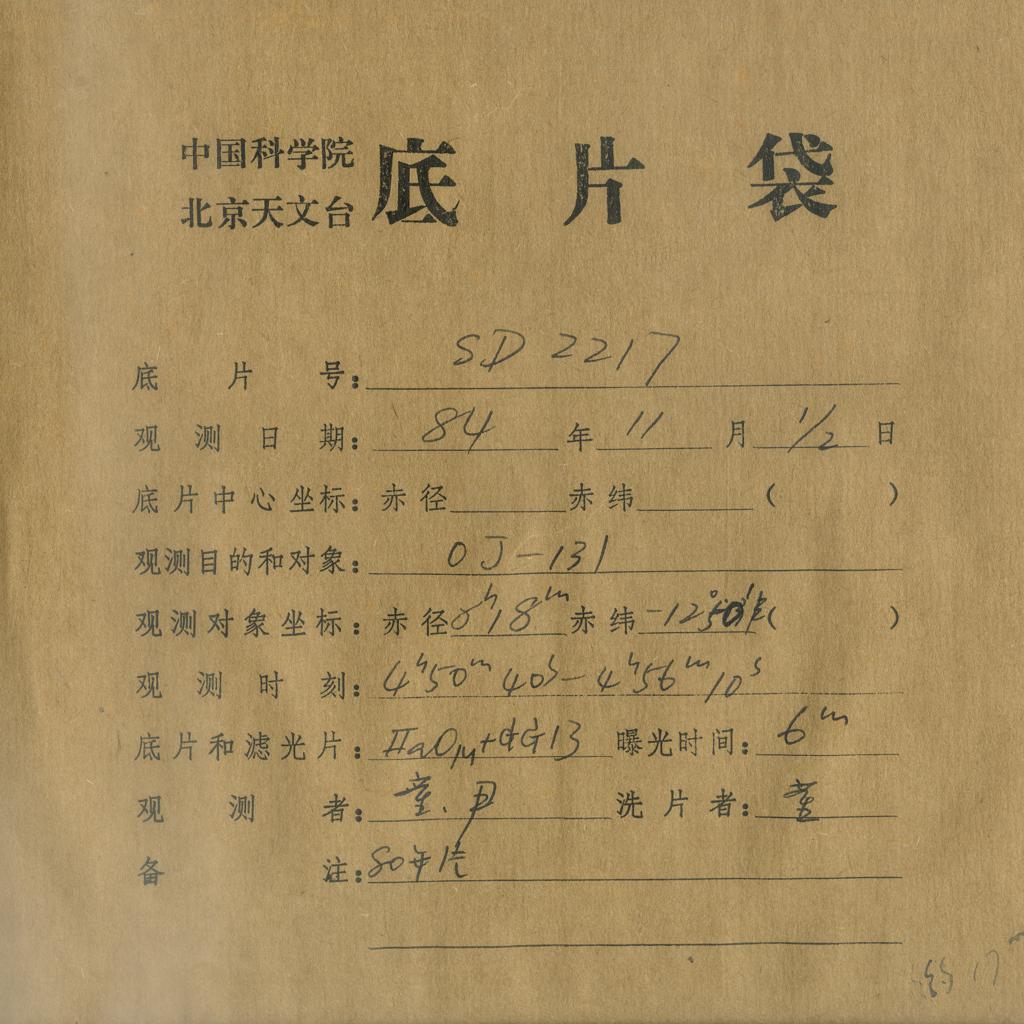 中国科学院
北京天文台
底片袋
底片号：SD 2217
观测日期：84年11月1/2日
底片中心坐标：赤径 赤纬 ( )
观测目的和对象：OJ-131
观测对象坐标：赤径8ʰ18ᵐ赤纬-12°50′ ( )
观测时刻：4ʰ50ᵐ40ˢ-4ʰ56ᵐ10ˢ
底片和滤光片：IIaO+GG13 曝光时间：6ᵐ
观测者：童.尹 洗片者：童
备注：80年片
17